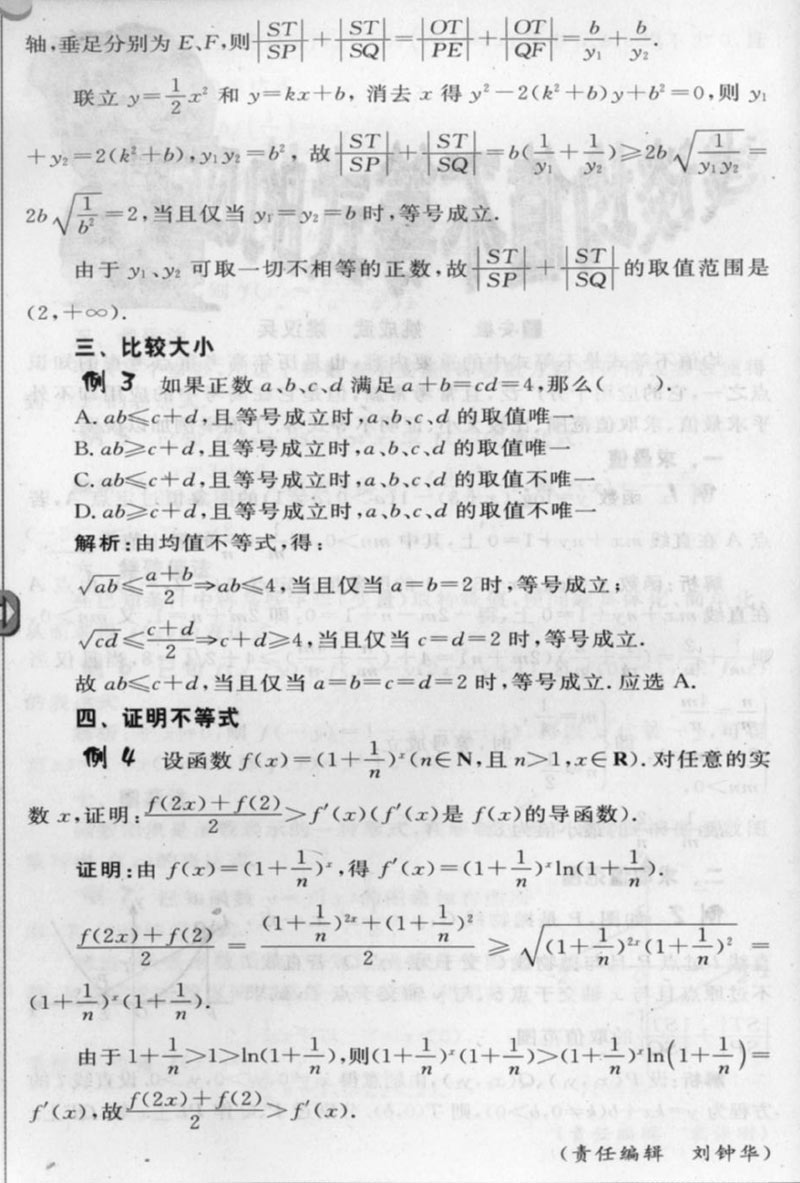 轴,垂足分别为 E、F,则|ST|/|SP|+|ST|/|SQ|=|OT|/|PE|+|OT|/|QF|=b/y₁+b/y₂.
联立 y=1/2x² 和 y=kx+b, 消去 x 得 y²-2(k²+b)y+b²=0,则 y₁
+y₂=2(k²+b),y₁y₂=b², 故|ST|/|SP|+|ST|/|SQ|=b(1/y₁+1/y₂)≥2b√(1/(y₁y₂))=
2b√(1/b²)=2,当且仅当 y₁=y₂=b 时,等号成立.
由于 y₁、y₂ 可取一切不相等的正数,故|ST|/|SP|+|ST|/|SQ|的取值范围是
(2,+∞).
三、比较大小
例 3 如果正数 a、b、c、d 满足 a+b=cd=4,那么( ).
A. ab≤c+d,且等号成立时,a、b、c、d 的取值唯一
B. ab≥c+d,且等号成立时,a、b、c、d 的取值唯一
C. ab≤c+d,且等号成立时,a、b、c、d 的取值不唯一
D. ab≥c+d,且等号成立时,a、b、c、d 的取值不唯一
解析:由均值不等式,得:
√ab≤(a+b)/2⇒ab≤4,当且仅当 a=b=2 时,等号成立;
√cd≤(c+d)/2⇒c+d≥4,当且仅当 c=d=2 时,等号成立.
故 ab≤c+d,当且仅当 a=b=c=d=2 时,等号成立.应选 A.
四、证明不等式
例 4 设函数 f(x)=(1+1/n)ˣ(n∈N,且 n>1,x∈R).对任意的实
数 x,证明:(f(2x)+f(2))/2>f′(x)(f′(x)是 f(x)的导函数).
证明:由 f(x)=(1+1/n)ˣ,得 f′(x)=(1+1/n)ˣln(1+1/n).
(f(2x)+f(2))/2=((1+1/n)²ˣ+(1+1/n)²)/2≥√((1+1/n)²ˣ(1+1/n)²)=
(1+1/n)ˣ(1+1/n).
由于 1+1/n>1>ln(1+1/n),则(1+1/n)ˣ(1+1/n)>(1+1/n)ˣln(1+1/n)=
f′(x),故(f(2x)+f(2))/2>f′(x).
(责任编辑 刘钟华)